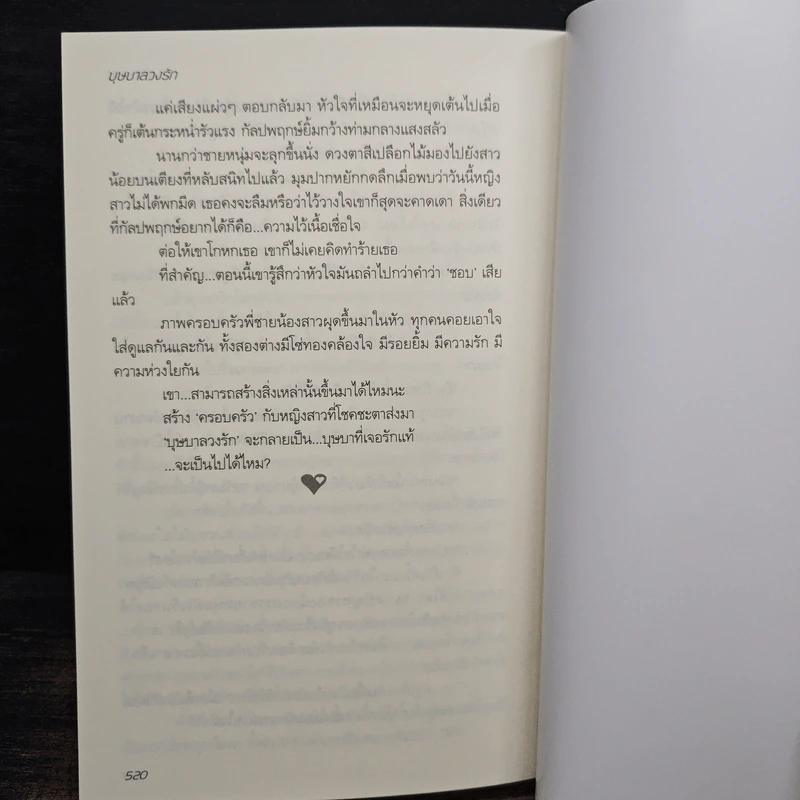 บุษบาลวงรัก
แค่เสียงแผ่วๆ ตอบกลับมา หัวใจที่เหมือนจะหยุดเต้นไปเมื่อ
ครู่ก็เต้นกระหน่ำรัวแรง กัลปพฤกษ์ยิ้มกว้างท่ามกลางแสงสลัว
นานกว่าชายหนุ่มจะลุกขึ้นนั่ง ดวงตาสีเปลือกไม้มองไปยังสาว
น้อยบนเตียงที่หลับสนิทไปแล้ว มุมปากหยักกดลึกเมื่อพบว่าวันนี้หญิง
สาวไม่ได้พกมีด เธอคงจะลืมหรือว่าไว้วางใจเขาก็สุดจะคาดเดา สิ่งเดียว
ที่กัลปพฤกษ์อยากได้ก็คือ...ความไว้เนื้อเชื่อใจ
ต่อให้เขาโกหกเธอ เขาก็ไม่เคยคิดทำร้ายเธอ
ที่สำคัญ...ตอนนี้เขารู้สึกว่าหัวใจมันถลำไปกว่าคำว่า ‘ชอบ’ เสีย
แล้ว
ภาพครอบครัวพี่ชายน้องสาวผุดขึ้นมาในหัว ทุกคนคอยเอาใจ
ใส่ดูแลกันและกัน ทั้งสองต่างมีโซ่ทองคล้องใจ มีรอยยิ้ม มีความรัก มี
ความห่วงใยกัน
เขา...สามารถสร้างสิ่งเหล่านั้นขึ้นมาได้ไหมนะ
สร้าง ‘ครอบครัว’ กับหญิงสาวที่โชคชะตาส่งมา
‘บุษบาลวงรัก’ จะกลายเป็น...บุษบาที่เจอรักแท้
...จะเป็นไปได้ไหม?
520